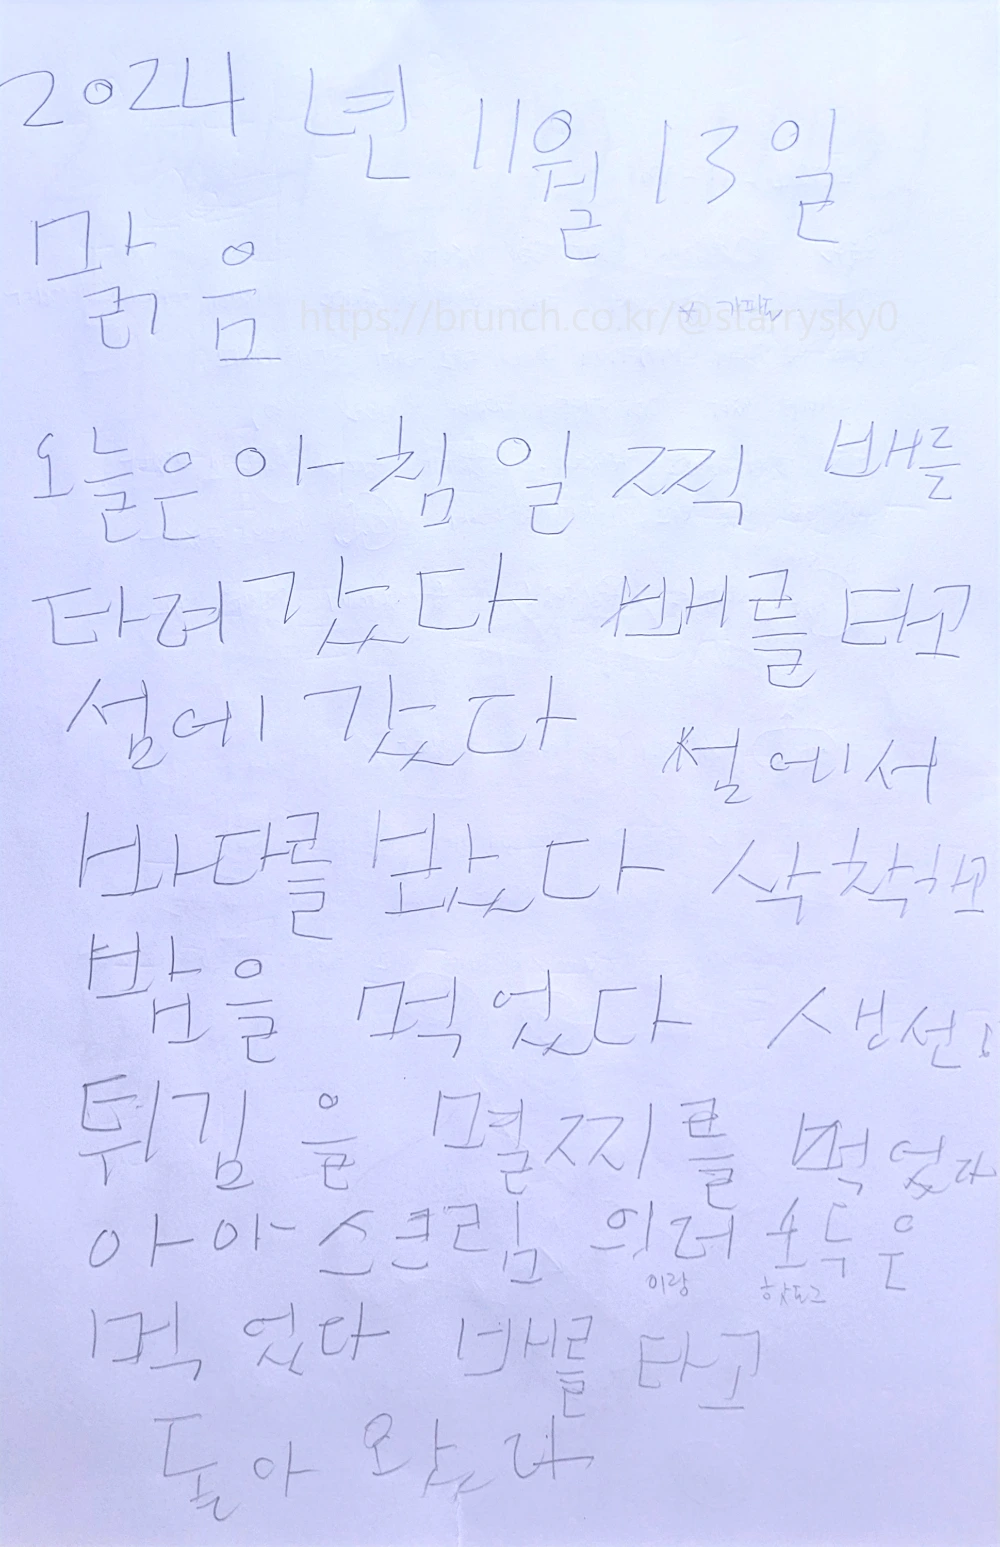 2024 년 11월 13일
맑음
https://brunch.co.kr/@starrysky0
* 가파도
오늘은 아침 일찍 배를
타려 갔다 배를 타고
섬에 갔다 섬에서
바다를 봤다 산책하고
밥을 먹었다 생선
튀김을 멸찌를 먹었다
아아스크림 의러 호두운
이랑 핫도그
먹었다 배를 타고
돌아 왔다